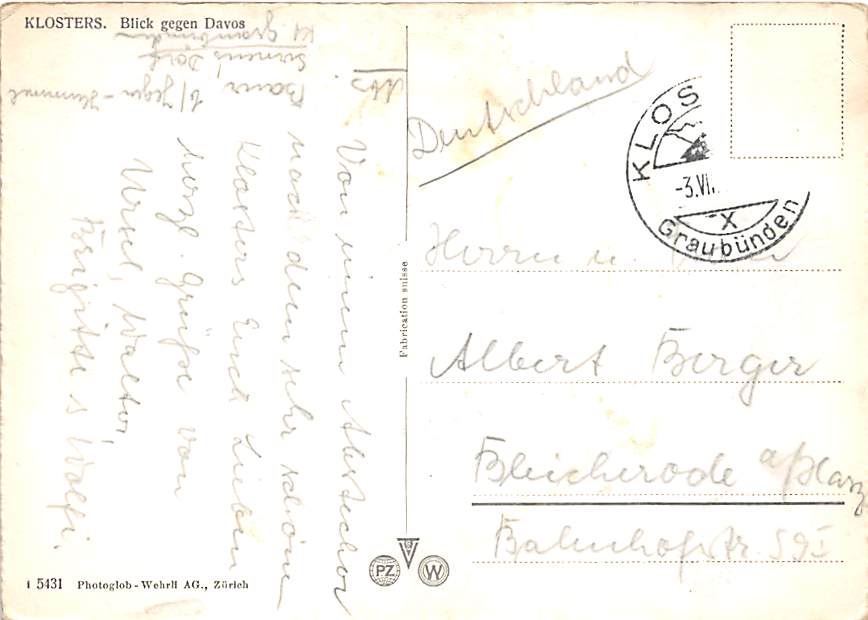 KLOSTERS. Blick gegen Davos
Von einem Abstecher
nach dem sehr schönen
Klosters Euch Lieben
herzl. Grüße von
Ursel, Walter,
Brigitte & Wolfi.
Kt Graubünden
Deutschland
KLOS
-3.VI.
X
Graubünden
Herrn u.
Albert Berger
Bleicherode a/Harz
Bahnhofstr. 59 I
Fabrication suisse
PZ
W
1 5431 Photoglob-Wehrli AG., Zürich